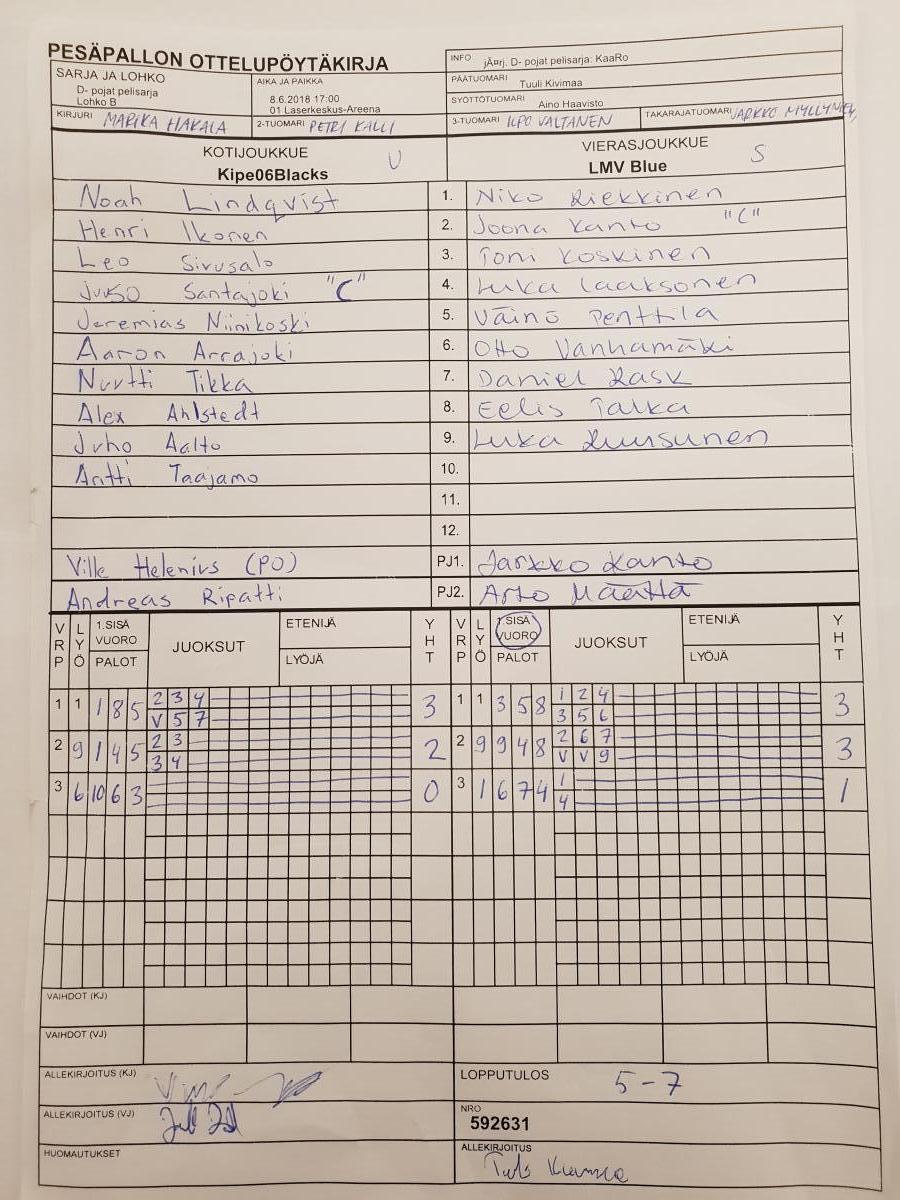 PESÄPALLON OTTELUPÖYTÄKIRJA
SARJA JA LOHKO
D- pojat pelisarja
Lohko B
AIKA JA PAIKKA
8.6.2018 17:00
01 Laserkeskus-Areena
INFO jÄ¤rj. D- pojat pelisarja: KaaRo
PÄÄTUOMARI Tuuli Kivimaa
SYÖTTÖTUOMARI Aino Haavisto
KIRJURI MARIKA HAKALA
2-TUOMARI PETRI KALLI
3-TUOMARI ILPO VALTANEN
TAKARAJATUOMARI
KOTIJOUKKUE U
Kipe06Blacks
VIERASJOUKKUE S
LMV Blue
Noah Lindqvist 1. Niko Riekkinen
Henri Ikonen 2. Joona Kanto "C"
Leo Sivusalo 3. Toni Koskinen
Juuso Santajoki "C" 4. Luka Laaksonen
Jeremias Niinikoski 5. Väinö Penttilä
Aaron Arrajoki 6. Otto Vanhamäki
Nuutti Tikka 7. Daniel Rask
Alex Ahlstedt 8. Eelis Talka
Juho Aalto 9. Luka Ruusunen
Antti Taajamo 10.
11.
12.
Ville Helenius (PO) PJ1. Jarkko Kanto
Andreas Ripatti PJ2. Arto Määttä
VRP LYÖ 1.SISÄ VUORO PALOT JUOKSUT ETENIJÄ LYÖJÄ YHT VRP LYÖ 1.SISÄ VUORO PALOT JUOKSUT ETENIJÄ LYÖJÄ YHT
1 1 1 8 5 2 3 4 3 1 1 3 5 8 1 2 4 3
V 5 7 3 5 6
2 9 1 4 5 2 3 2 2 9 9 4 8 2 6 7 3
3 4 V V 9
3 6 10 6 3 0 3 1 6 7 4 1 1
4
VAIHDOT (KJ)
VAIHDOT (VJ)
ALLEKIRJOITUS (KJ)
LOPPUTULOS 5-7
ALLEKIRJOITUS (VJ)
NRO
592631
HUOMAUTUKSET
ALLEKIRJOITUS